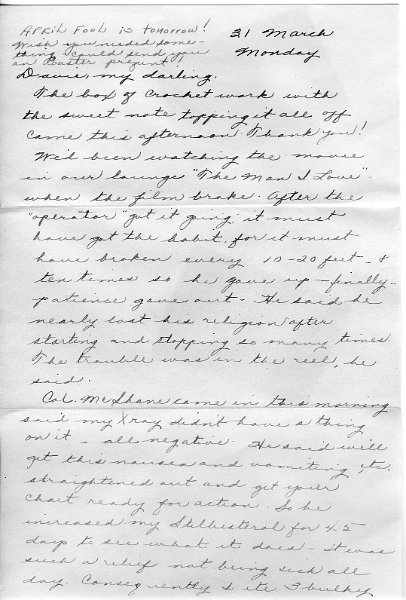 APRIL FOOL IS TOMORROW!
Wish you needed some-
thing could send you
an Easter present!
31 March
Monday
my darling,
The box of Crocket work with
the sweet note topping it all off
came this afternoon. Thank you!
We'd been watching the movie
in our lounge "The Man I Love"
when the film brake. After the
"operator" got it going it must
have got the habit, for it must
have broken every 10-20 feet - &
ten times so he gave up - finally -
patience gave out - He said he
nearly lost his religion after
starting and stopping so many times.
The trouble was in the reel, he
said.
Col. McShane came in this morning
said my Xray didn't have a thing
on it - all negative. He said will
get this nausea and vomiting, etc,
straightened out and get your
chart ready for action. So he
increased my Stilbesteral for 4-5
days to see what it does - it was
such a relief not being sick all
day. Consequently I ate 3 bulky